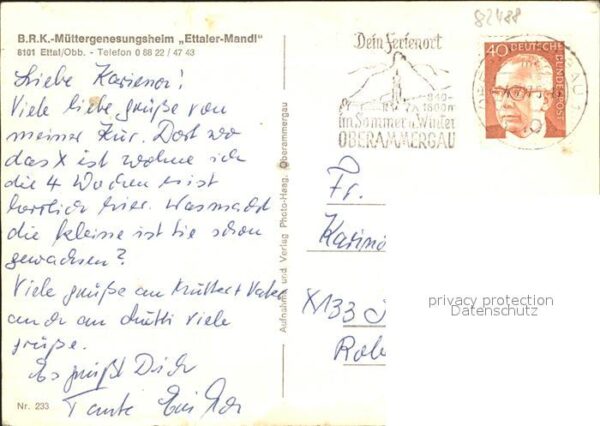 82488
B.R.K.-Müttergenesungsheim „Ettaler-Mandl"
8101 Ettal/Obb. - Telefon 0 88 22 / 47 43
Liebe
Viele liebe Grüße von
meiner Kur. Dort wo
das X ist wohne ich
die 4 Wochen es ist
herrlich hier. Was macht
die kleine ist sie schon
gewachsen?
Viele Grüße an Mutter + Vater
auch an Mutti viele
Grüße.
Es grüßt Dich
Tante
Nr. 233
Aufnahme und Verlag Photo-Haag, Oberammergau
Dein Ferienort
840-
1800m
im Sommer u. Winter
OBERAMMERGAU
40
DEUTSCHE
BUNDESPOST
Fr.
X133
privacy protection
Datenschutz